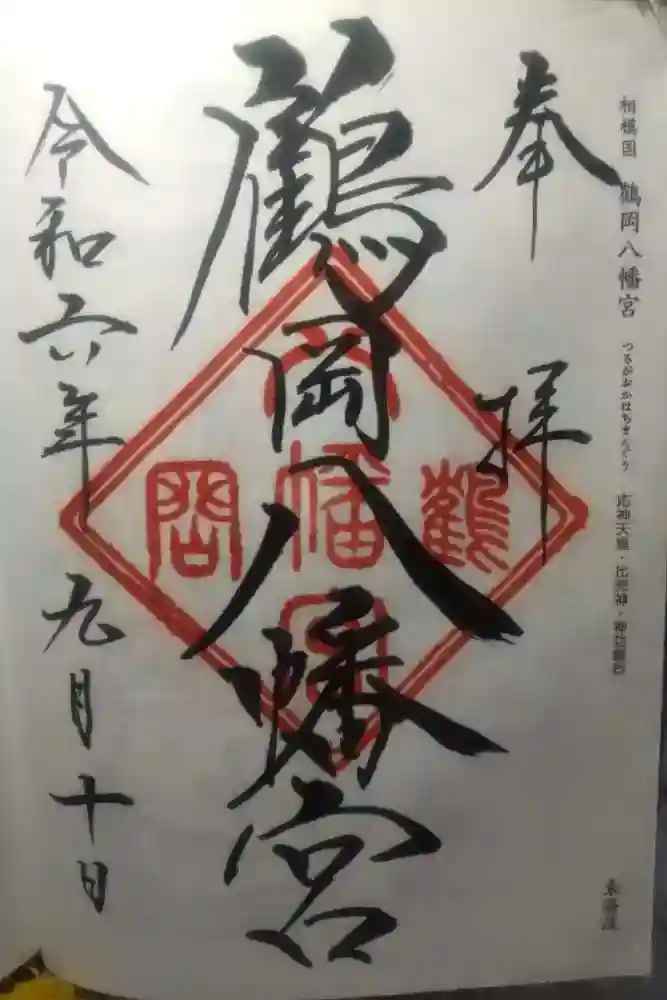 相模国 鶴岡八幡宮 つるがおかはちまんぐう 応神天皇・比売神・神功皇后
奉拝
鶴岡八幡宮
令和六年九月十日
鶴
八幡宮
岡